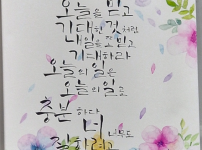 오늘을 믿고
기대한 것처럼
내일을 또 믿고
기대하라
오늘의 일은
오늘의 일로
충분하다
너 너무도
잘하려고